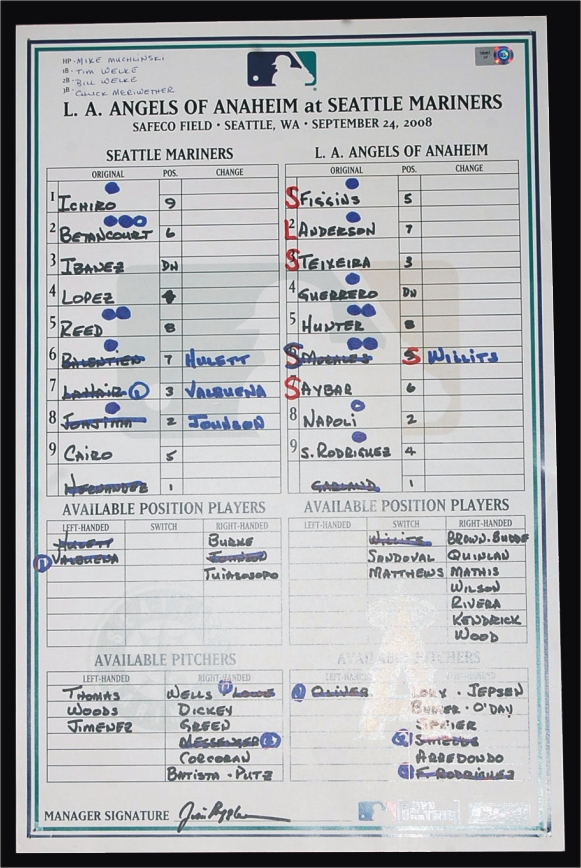 HP- MIKE MUCHLINSKI
1B- TIM WELKE
2B- BILL WELKE
3B- CHUCK MERIWETHER
L. A. ANGELS OF ANAHEIM at SEATTLE MARINERS
SAFECO FIELD • SEATTLE, WA • SEPTEMBER 24, 2008
SEATTLE MARINERS
ORIGINAL POS. CHANGE
1 ICHIRO 9
2 BETANCOURT 6
3 IBANEZ DH
4 LOPEZ 4
5 REED 8
6 BALENTIEN 7 HULETT
7 LAHAIR 1 3 VALBUENA
8 JOHJIMA 2 JOHNSON
9 CAIRO 5
HERNANDEZ 1
L. A. ANGELS OF ANAHEIM
ORIGINAL POS. CHANGE
S FIGGINS 5
L 2 ANDERSON 7
S TEIXEIRA 3
4 GUERRERO DH
5 HUNTER 8
S MORALES S WILLITS
S AYBAR 6
8 NAPOLI 2
9 S. RODRIGUEZ 4
GARLAND 1
AVAILABLE POSITION PLAYERS
LEFT-HANDED SWITCH RIGHT-HANDED
HULETT BURKE
1 VALBUENA JOHNSON
TUIASOSOPO
AVAILABLE POSITION PLAYERS
LEFT-HANDED SWITCH RIGHT-HANDED
WILLITS BROWN. BUDDE
SANDOVAL QUINLAN
MATTHEWS MATHIS
WILSON
RIVERA
KENDRICK
WOOD
AVAILABLE PITCHERS
LEFT-HANDED RIGHT-HANDED
THOMAS WELLS LOWE
WOODS DICKEY
JIMENEZ GREEN
MESSENGER 2
CORCORAN
BATISTA - PUTZ
AVAILABLE PITCHERS
LEFT-HANDED RIGHT-HANDED
OLIVER LOUX - JEPSEN
BULGER - O'DAY
SPEIER
SHIELDS
ARREDONDO
F. RODRIGUEZ
MANAGER SIGNATURE